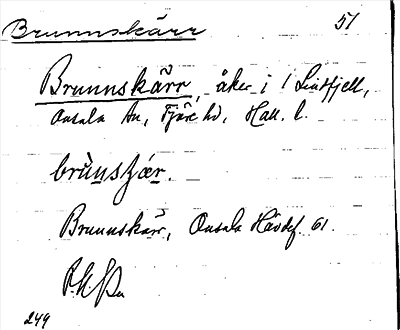 Brunnskärr 51
Brunnskärr, åker i 1 Lindfjell,
Onsala sn, Fjäre hd, Hall. l.
brùnsʃær.
Brunnskärr, Onsala Hävdef. 61.
249